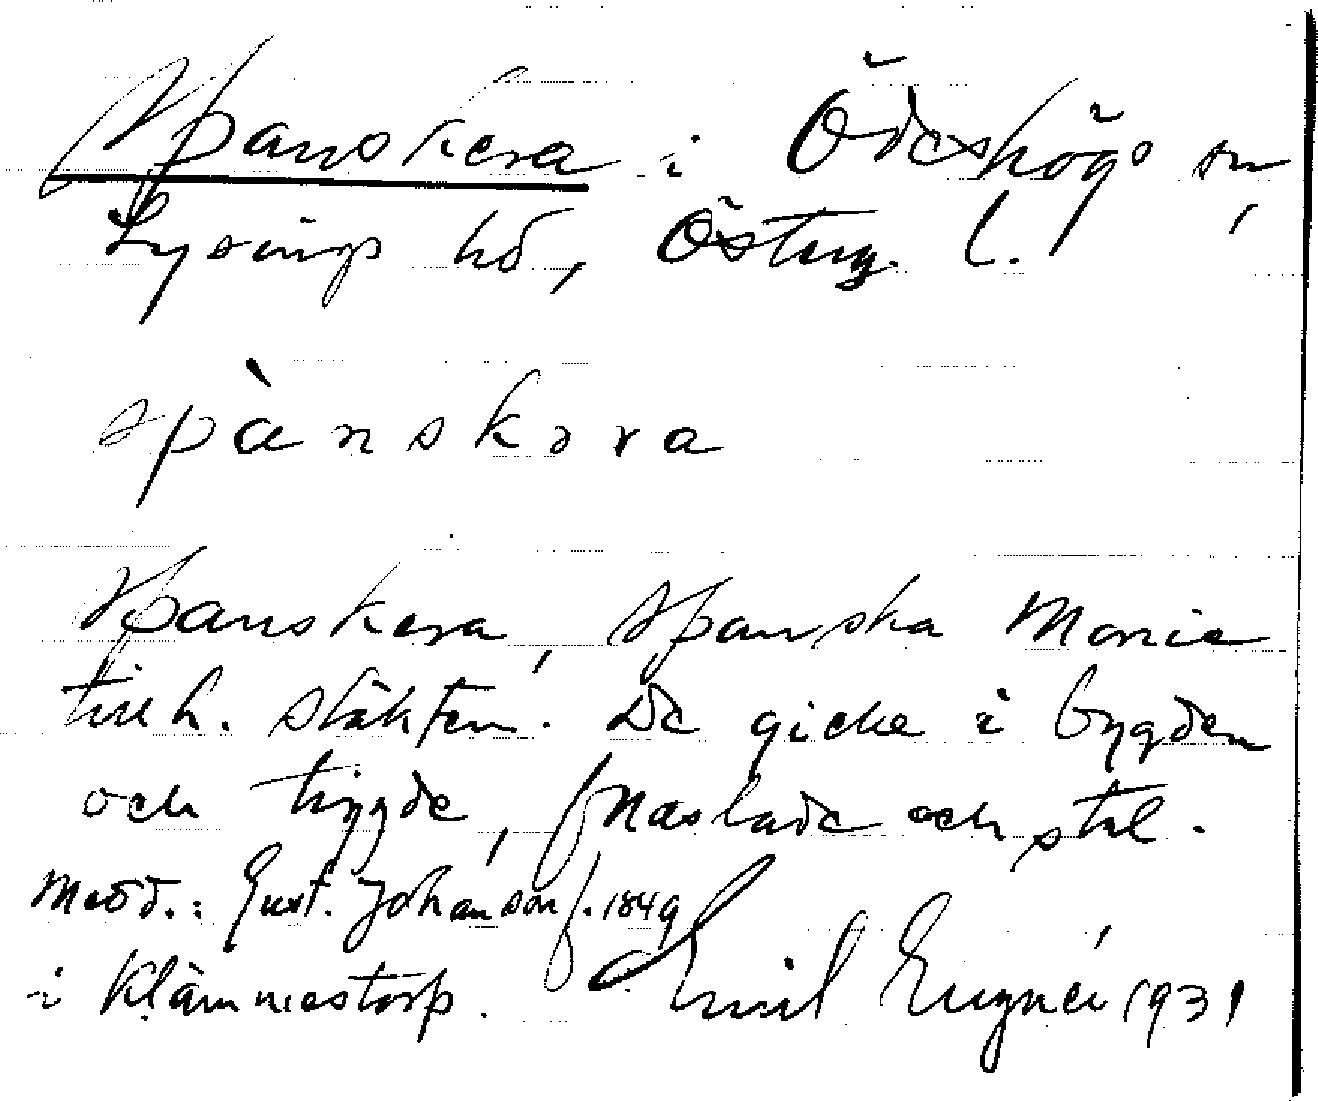 Spanskera i Ödeshögs sn,
Lysings hd, Österg. l.
spànskəra
Spanskera, Spanska Marie
till h. släkten. De gicke i bygden
och tiggde, snaslade och stal.
Medd.: Gust. Johanson f. 1849
i Klämmestorp. Emil Eugnér 1931